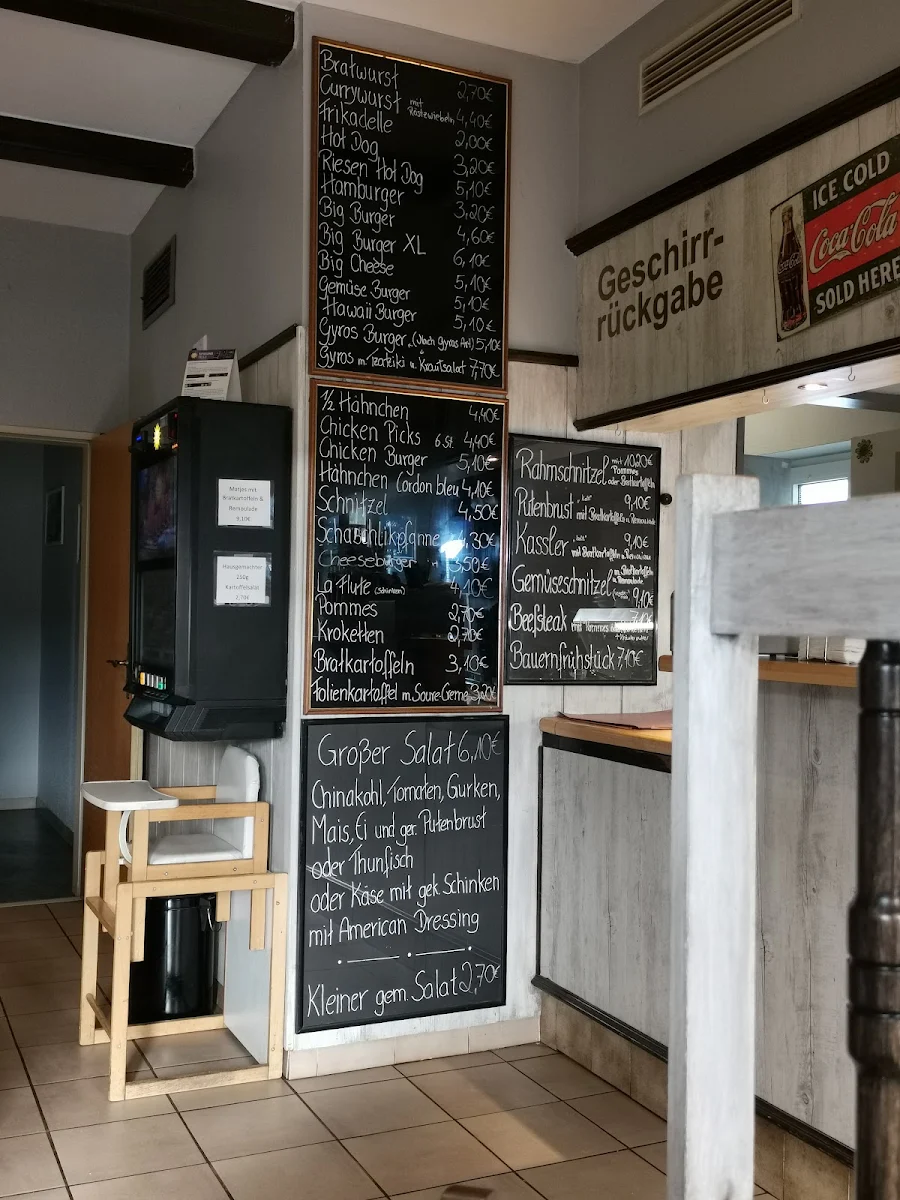 Bratwurst 2,70€
Currywurst mit Röstzwiebeln 4,40€
Frikadelle 2,00€
Hot Dog 3,20€
Riesen Hot Dog 5,10€
Hamburger 3,20€
Big Burger 4,60€
Big Burger XL 6,10€
Big Cheese 5,10€
Gemüse Burger 5,10€
Hawaii Burger 5,10€
Gyros Burger (Nach Gyros Art) 5,10€
Gyros m. Tzatziki u. Krautsalat 7,70€
1/2 Hähnchen 4,40€
Chicken Picks 6 St. 4,40€
Chicken Burger 5,10€
Hähnchen Cordon bleu 4,10€
Schnitzel 4,50€
Schaschlikpfanne 4,30€
Cheeseburger 3,50€
La Flute (Schinken) 4,10€
Pommes 2,70€
Kroketten 2,70€
Bratkartoffeln 3,10€
Folienkartoffel m. Soure Creme 3,20€
Großer Salat 6,10€
Chinakohl, Tomaten, Gurken,
Mais, Ei und ger. Putenbrust
oder Thunfisch
oder Käse mit gek. Schinken
mit American Dressing
Kleiner gem. Salat 2,70€
Rahmschnitzel mit Pommes oder Bratkartoffeln 10,20€
Putenbrust 9,10€
mit Bratkartoffeln u. Remoulade
Kassler 9,10€
mit Bratkartoffeln u.
Gemüseschnitzel m. Bratkartoffeln
9,10€
Beefsteak mit Pommes
Bauernfrühstück 7,10€
Matjes mit
Bratkartoffeln &
Remoulade
9,10€
Hausgemachter
250g
Kartoffelsalat
2,70€
Geschirr-
rückgabe
ICE COLD
Coca-Cola
SOLD HERE